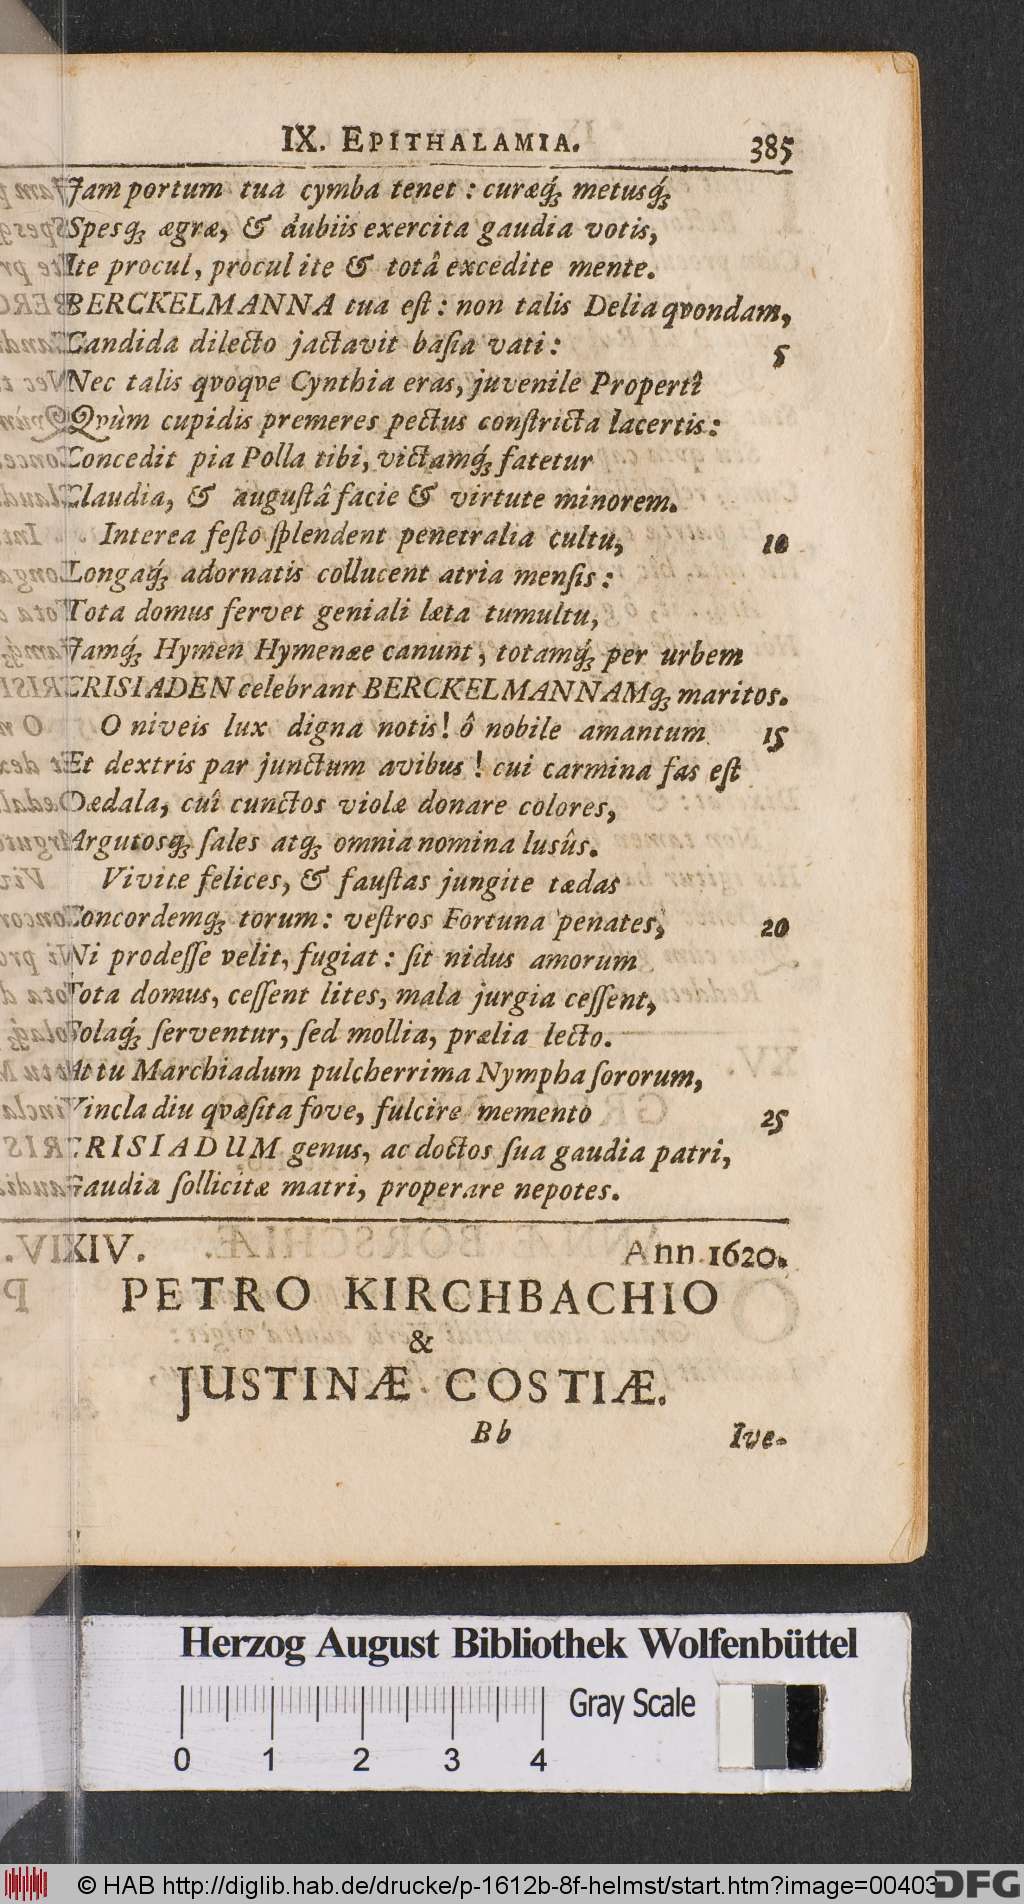 IX. EPITHALAMIA. 385
Jam portum tua cymba tenet : curæq́; metusq́;
Spesq; ægræ, & dubiis exercita gaudia votis,
Ite procul, procul ite & totâ excedite mente.
BERCKELMANNA tua eſt : non talis Delia qvondam,
Candida dilecto jactavit baſia vati : 5
Nec talis qvoqve Cynthia eras, juvenile Propertî
Qvùm cupidis premeres pectus conſtricta lacertis :
Concedit pia Polla tibi, victamq́; fatetur
Claudia, & auguſtâ facie & virtute minorem.
Interea feſto ſplendent penetralia cultu, 10
Longaq́; adornatis collucent atria menſis :
Tota domus fervet geniali læta tumultu,
Jamq́; Hymen Hymenæe canunt, totamq́; per urbem
CRISIADEN celebrant BERCKELMANNAMq; maritos.
O niveis lux digna notis! ô nobile amantum 15
Et dextris par junctum avibus ! cui carmina fas eſt
Dædala, cui cunctos violæ donare colores,
Argutosq; ſales atq; omnia nomina luſûs.
Vivite felices, & fauſtas jungite tædas
Concordemq; torum : veſtros Fortuna penates, 20
Ni prodeſſe velit, fugiat : ſit nidus amorum
Tota domus, ceſſent lites, mala jurgia ceſſent,
Solaq́; ſerventur, ſed mollia, prælia lecto.
At tu Marchiadum pulcherrima Nympha ſororum,
Vincla diu qvæſita fove, fulcire memento 25
CRISIADUM genus, ac doctos ſua gaudia patri,
Gaudia ſollicitæ matri, properare nepotes.
XIV. Ann. 1620.
PETRO KIRCHBACHIO
&
JUSTINÆ COSTIÆ.
Bb Ive-
Herzog August Bibliothek Wolfenbüttel
Gray Scale
0 1 2 3 4
© HAB http://diglib.hab.de/drucke/p-1612b-8f-helmst/start.htm?image=00403
DFG